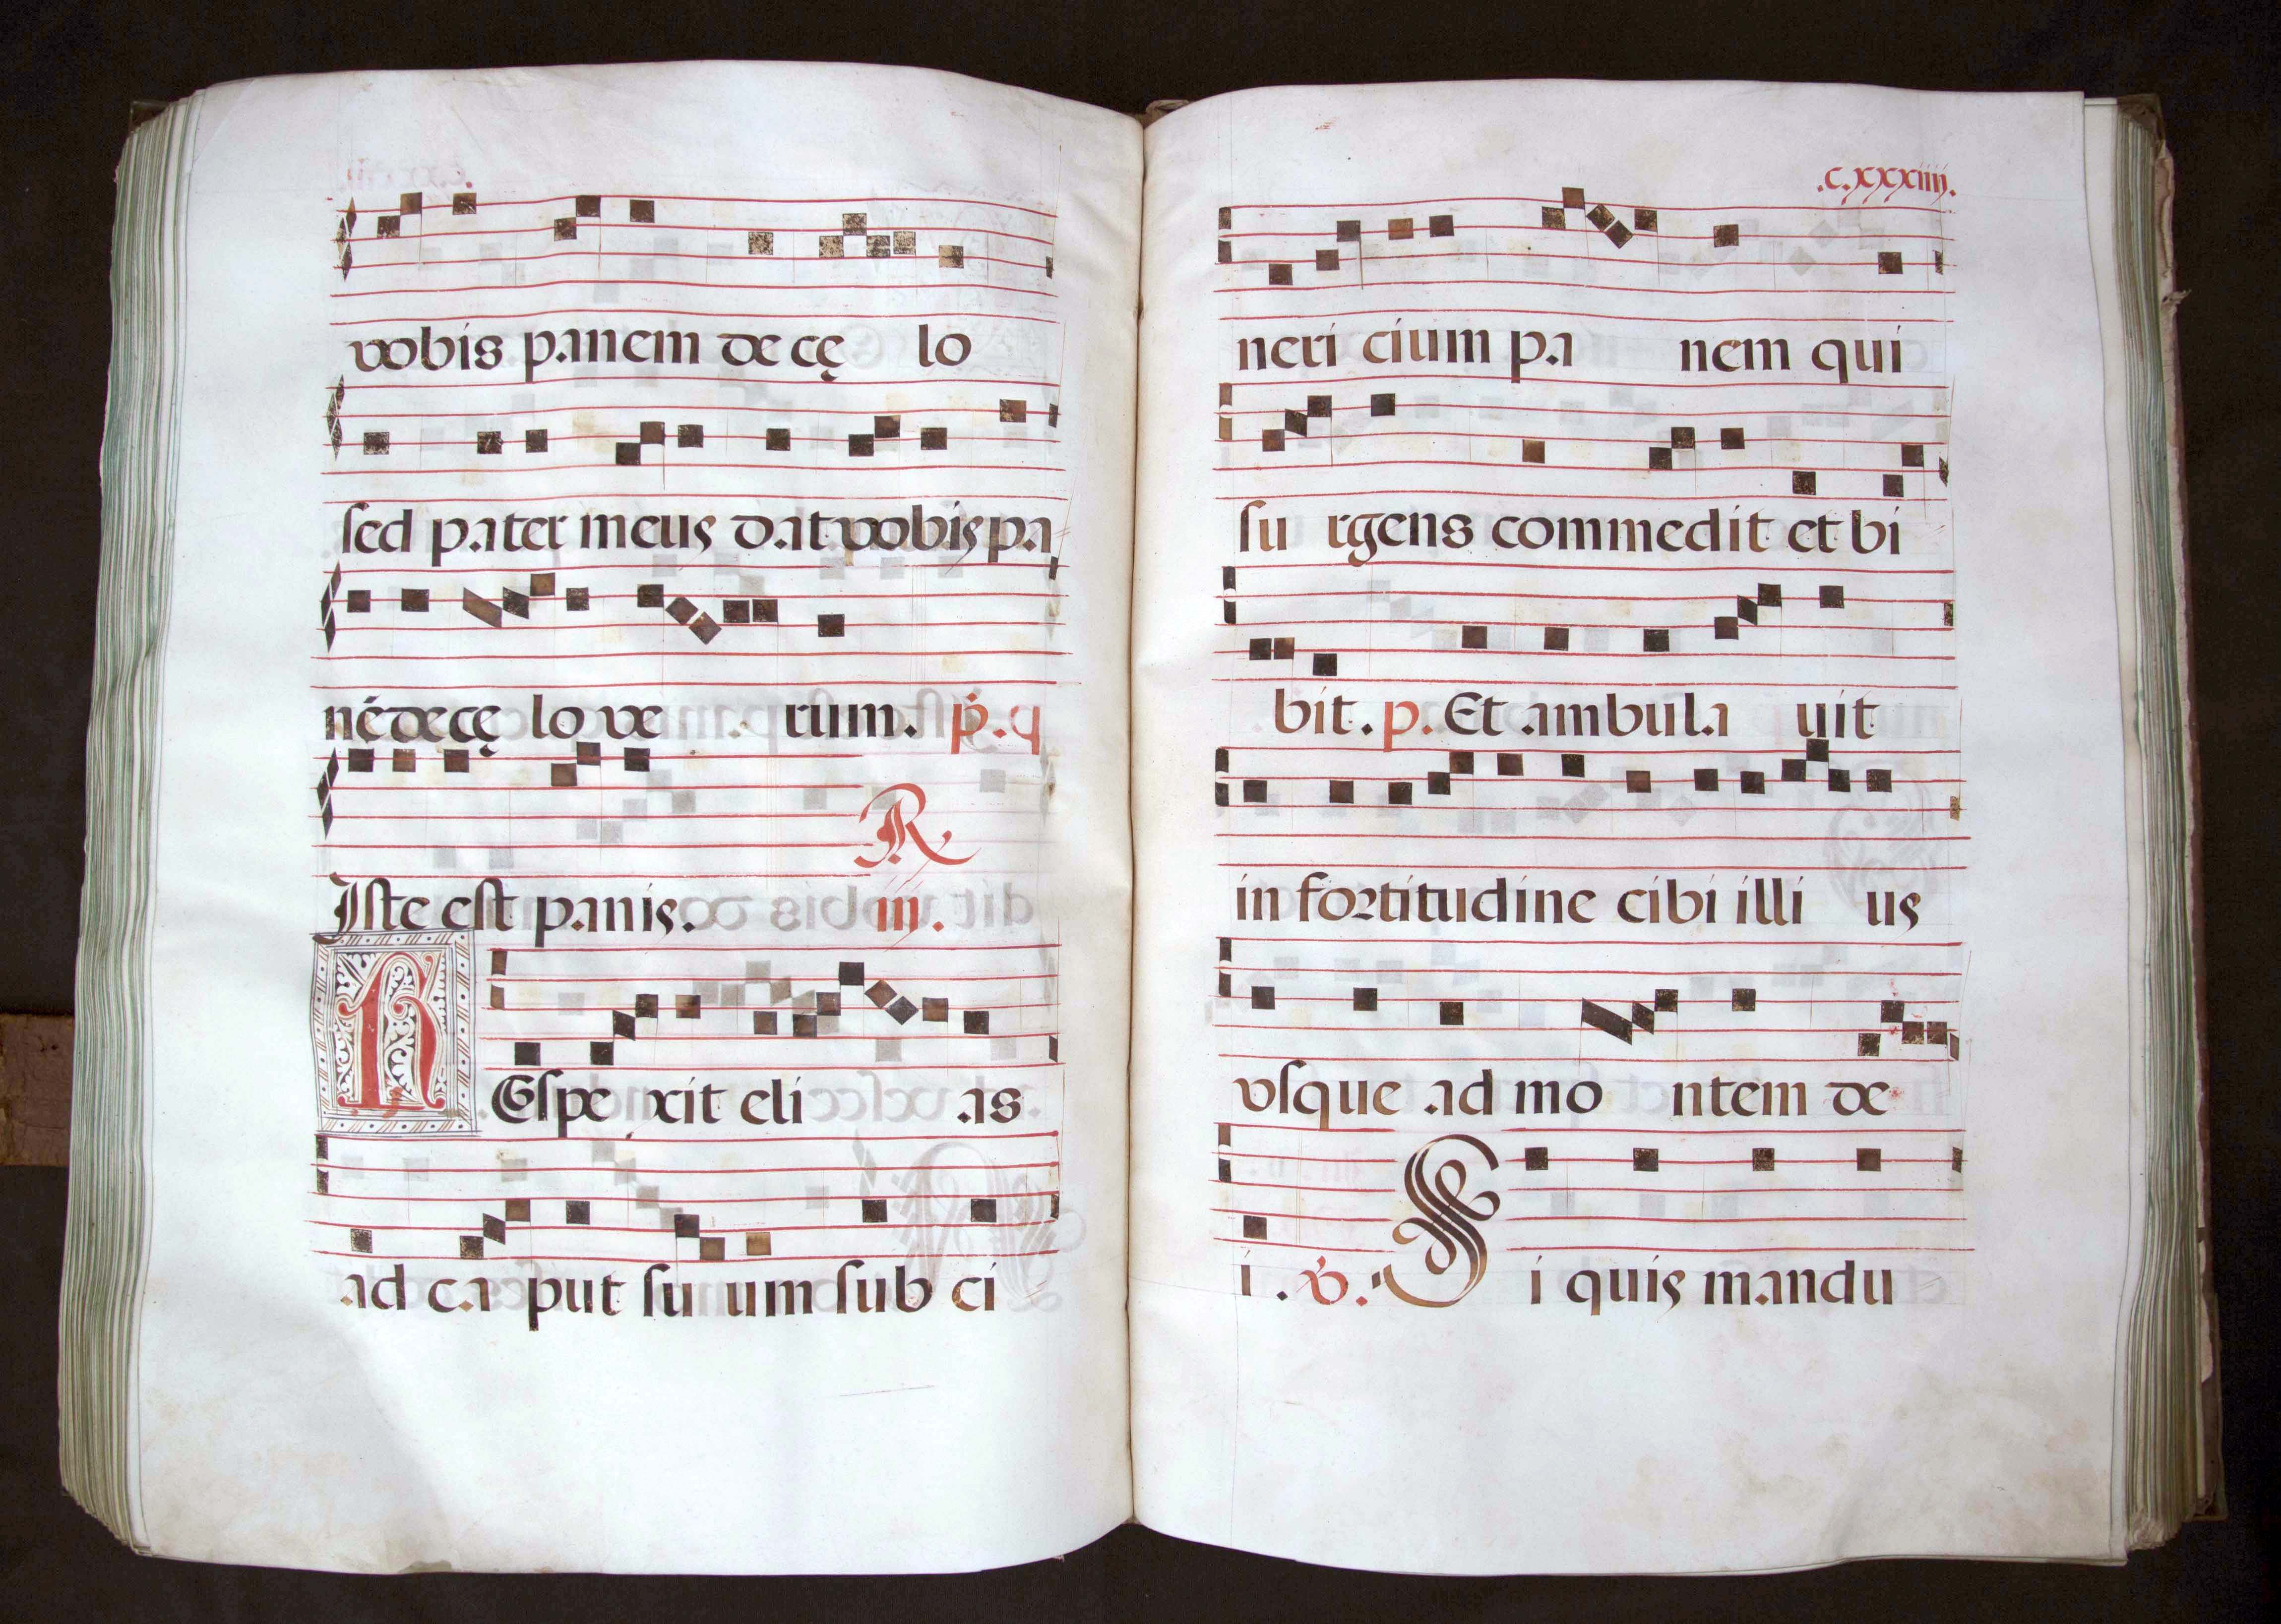 vobis panem de cę lo
sed pater meus dat vobis pa
nē de cę lo ve rum. p̄. q
R
Iste est panis. iii.
REspe xit eli as
ad ca put su um sub ci
.c.xxxiiii.
neri cium pa nem qui
su rgens commedit et bi
bit. p. Et ambula uit
in fortitudine cibi illi us
vsque ad mo ntem de
i. v. S i quis mandu